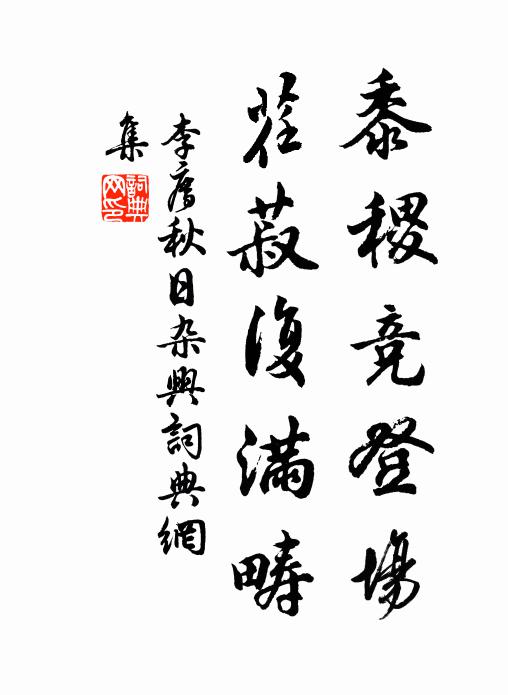 黍稷竞登場
荏菽復滿疇
李廌秋日杂興詞典網
集
詞典
网印